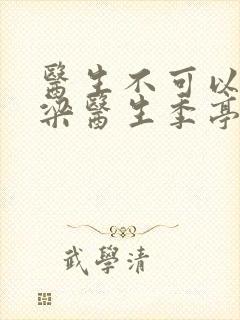 醫生不可以
梁醫生季亭
武學清